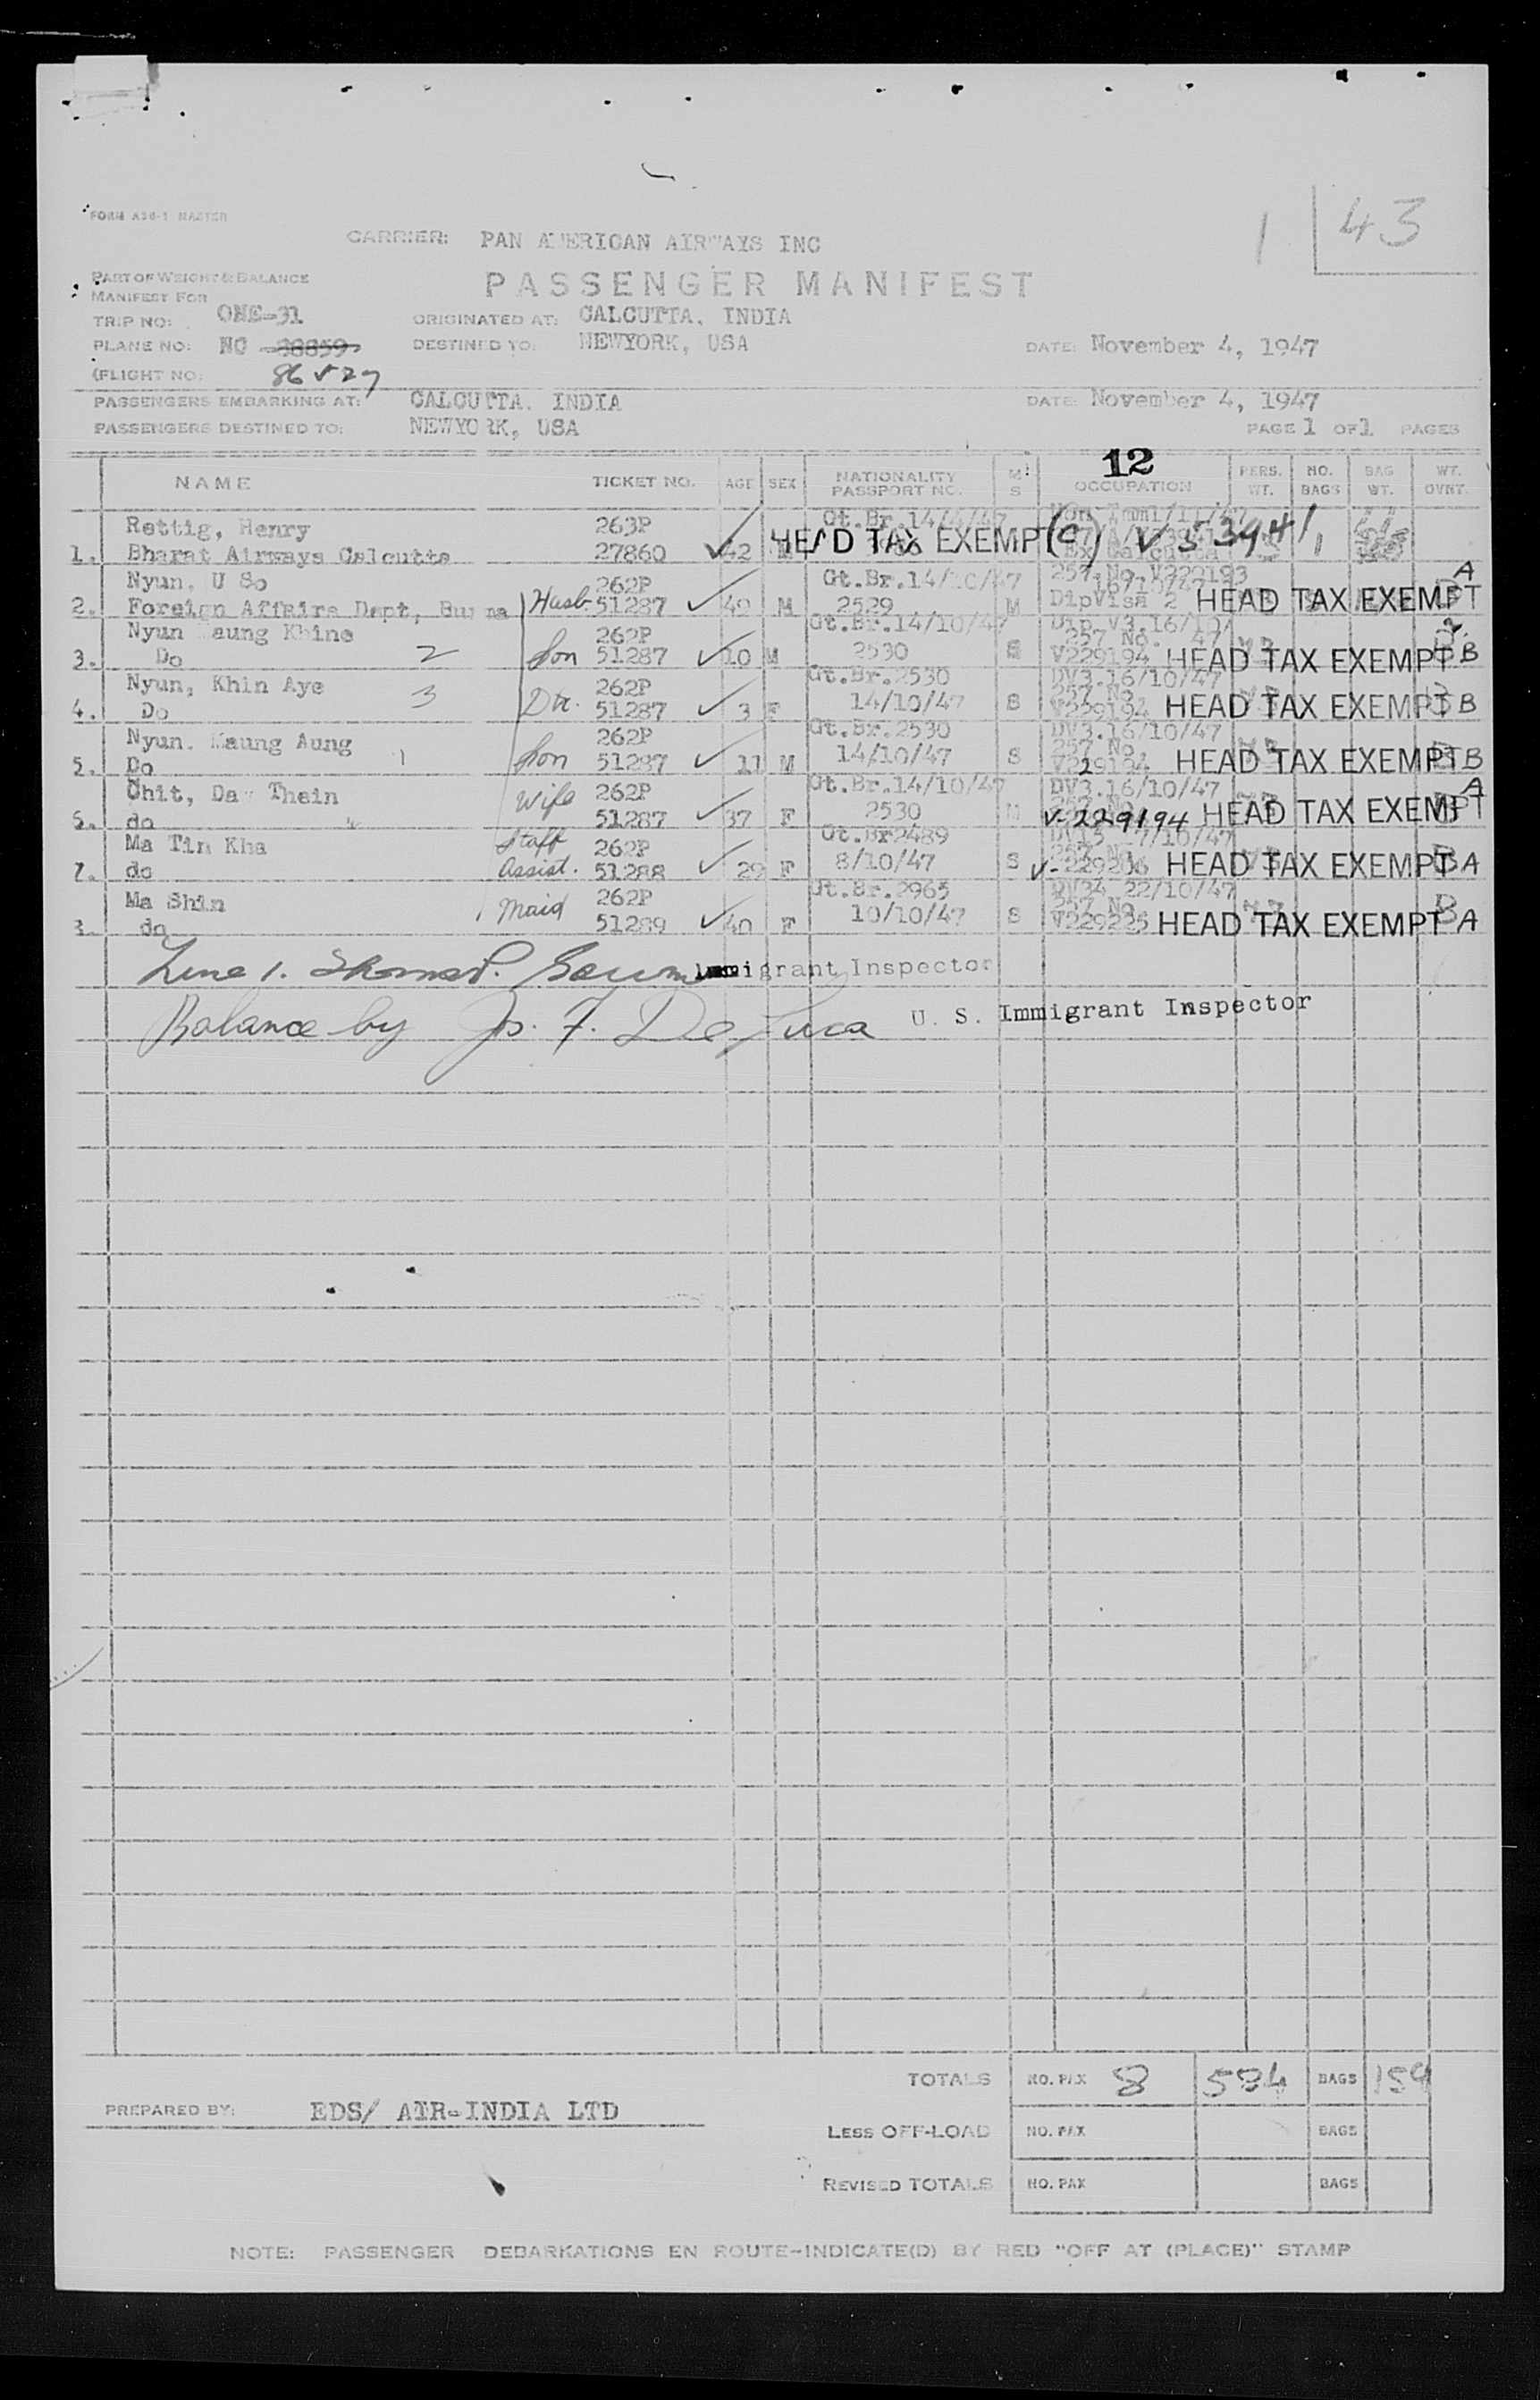 FORM A36-1 MASTER
1 43
CARRIER: PAN AMERICAN AIRWAYS INC
PART OF WEIGHT & BALANCE
MANIFEST FOR
PASSENGER MANIFEST
TRIP NO: ONE-31 ORIGINATED AT: CALCUTTA, INDIA
PLANE NO: NC 88859 DESTINED TO: NEWYORK, USA DATE: November 4, 1947
(FLIGHT NO:
PASSENGERS EMBARKING AT: CALCUTTA, INDIA DATE: November 4, 1947
PASSENGERS DESTINED TO: NEWYORK, USA PAGE 1 OF 1 PAGES
12
NAME TICKET NO. AGE SEX NATIONALITY PASSPORT NO. M S OCCUPATION PERS. WT. NO. BAGS BAG WT. WT. OVNT.
Rettig, Henry 263P Gt.Br.14/
1. Bharat Airways Calcutta 27860 42 HEAD TAX EXEMPT (C) V 53941
Nyun, U So 262P Gt.Br.14/10/47 257 No V229193 A
2. Foreign Affairs Dept, Burma Husb 51287 49 M 2529 M DipVisa 2 HEAD TAX EXEMPT
Nyun Maung Khine 262P Gt.Br.14/10/47 Dip V3.16/10/ 257 No. 47
3. Do 2 Son 51287 10 M 2530 S V229194 HEAD TAX EXEMPT B
Nyun, Khin Aye 262P Gt.Br.2530 DV3.16/10/47 257 No
4. Do 3 Dtr. 51287 3 F 14/10/47 S V229194 HEAD TAX EXEMPT B
Nyun, Maung Aung 262P Gt.Br.2530 DV3.16/10/47 257 No
5. Do 1 Son 51287 11 M 14/10/47 S V229194 HEAD TAX EXEMPT B
Chit, Daw Thein Wife 262P Gt.Br.14/10/47 DV3.16/10/47 A
6. do 51287 37 F 2530 M V-229194 HEAD TAX EXEMPT
Ma Tin Kha Staff 262P Gt.Br2489
7. do Assist. 51288 29 F 8/10/47 S V-229206 HEAD TAX EXEMPT A
Ma Shin Maid 262P Gt.Br.2965 DV24 22/10/47 257 No
8. do 51289 40 F 10/10/47 S V229225 HEAD TAX EXEMPT A
Line 1. Immigrant Inspector
Balance by Jos. F. DeLuca U. S. Immigrant Inspector
TOTALS NO. PAX 8 584 BAGS 159
PREPARED BY: EDS/ AIR-INDIA LTD
LESS OFF-LOAD NO. PAX BAGS
REVISED TOTALS NO. PAX BAGS
NOTE: PASSENGER DEBARKATIONS EN ROUTE-INDICATE(D) BY RED "OFF AT (PLACE)" STAMP